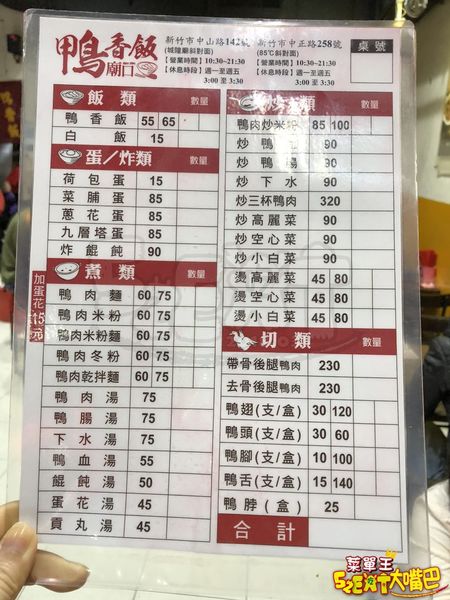 鴨香飯
廟口
新竹市中山路142號
(城隍廟斜對面)
【營業時間】10:30~21:30
【休息時段】週一至週五
3:00 至 3:30
新竹市中正路258號
(85℃斜對面)
【營業時間】10:30~21:30
【休息時段】週一至週五
3:00 至 3:30
桌號
飯類 數量
鴨香飯 55 65
白飯 15
蛋/炸類 數量
荷包蛋 15
菜脯蛋 85
蔥花蛋 85
九層塔蛋 85
炸餛飩 90
煮類 數量
加蛋花15元
鴨肉麵 60 75
鴨肉米粉 60 75
鴨肉米粉麵 60 75
鴨肉冬粉 60 75
鴨肉乾拌麵 60 75
鴨肉湯 75
鴨腸湯 75
下水湯 75
鴨血湯 55
餛飩湯 50
蛋花湯 45
貢丸湯 45
類 數量
鴨肉炒米粉 85 100
炒鴨 90
炒鴨腸 90
炒下水 90
炒三杯鴨肉 320
炒高麗菜 90
炒空心菜 90
炒小白菜 90
燙高麗菜 45 80
燙空心菜 45 80
燙小白菜 45 80
切類 數量
帶骨後腿鴨肉 230
去骨後腿鴨肉 230
鴨翅(支/盒) 30 120
鴨頭(支/盒) 30 60
鴨腳(支/盒) 10 100
鴨舌(支/盒) 15 140
鴨脖(盒) 25
合計
菜單王
SZEAT大嘴巴